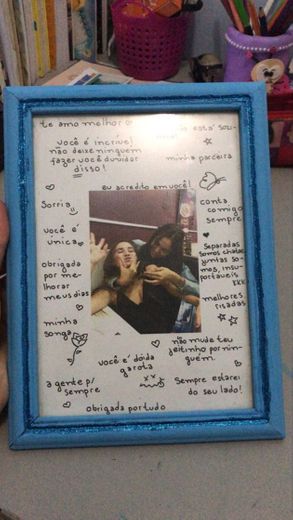 te amo melhor
está sozi-
você é incrível
não deixe ninguém
fazer você duvidar
disso!
minha parceira
eu acredito em você!
Sorria
conta
comigo
sempre
você é
única
Separadas
somos chatas,
juntas so-
mos, insu-
portáveis
KKK
obrigada
por me-
lhorar
meus dias
melhores
risadas
minha
não mude teu
jeitinho por nin-
guém
você é doida
garota
a gente p/
sempre
Sempre estarei
do seu lado!
obrigada por tudo